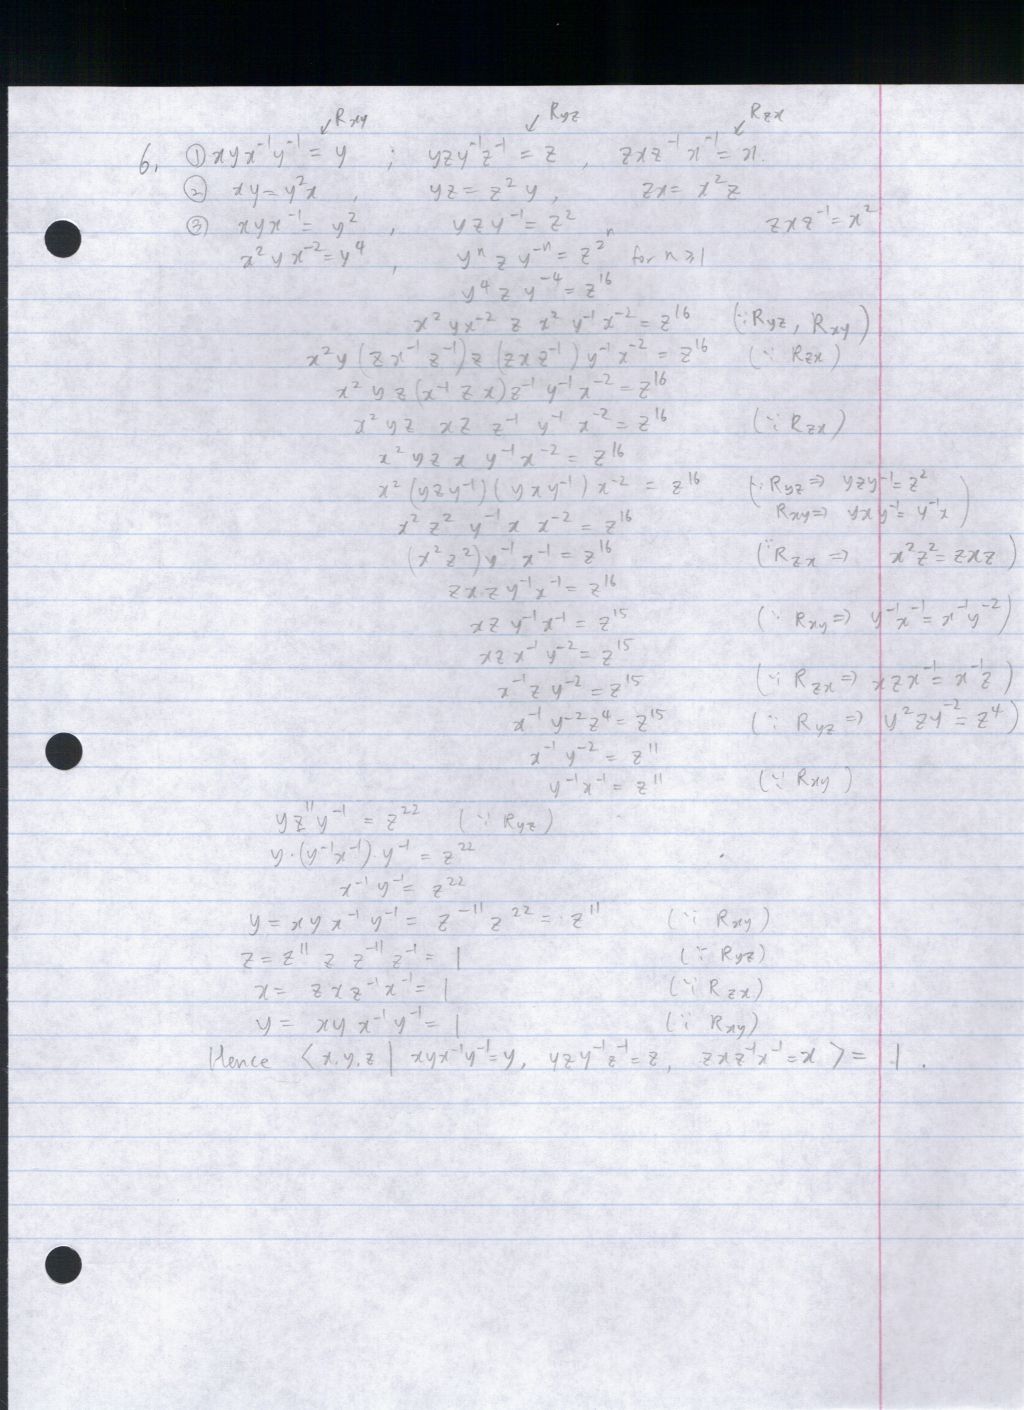 ↙Rxy ↙Ryz ↙Rzx
6. ① xyx⁻¹y⁻¹ = y ; yzy⁻¹z⁻¹ = z , zxz⁻¹x⁻¹ = x.
② xy = y²x , yz = z²y , zx = x²z
③ xyx⁻¹ = y² , yzy⁻¹ = z² zxz⁻¹ = x²
x²yx⁻² = y⁴ , yⁿzy⁻ⁿ = z^2^n for n ≥ 1
y⁴zy⁻⁴ = z¹⁶
x²yx⁻² z x²y⁻¹x⁻² = z¹⁶ (∵ Ryz, Rxy)
x²y(zx⁻¹z⁻¹)z(zxz⁻¹)y⁻¹x⁻² = z¹⁶ (∵ Rzx)
x²yz(x⁻¹zx)z⁻¹y⁻¹x⁻² = z¹⁶
x²yz xz z⁻¹ y⁻¹ x⁻² = z¹⁶ (∵ Rzx)
x²yzx y⁻¹x⁻² = z¹⁶
x²(yzy⁻¹)(yxy⁻¹)x⁻² = z¹⁶ (∵ Ryz ⇒ yzy⁻¹ = z²
Rxy ⇒ yxy⁻¹ = y⁻¹x)
x²z²y⁻¹x x⁻² = z¹⁶
(x²z²)y⁻¹x⁻¹ = z¹⁶ (∵ Rzx ⇒ x²z² = zxz)
zxzy⁻¹x⁻¹ = z¹⁶
xzy⁻¹x⁻¹ = z¹⁵ (∵ Rxy ⇒ y⁻¹x⁻¹ = x⁻¹y⁻²)
xzx⁻¹y⁻² = z¹⁵
x⁻¹zy⁻² = z¹⁵ (∵ Rzx ⇒ xzx⁻¹ = x⁻¹z)
x⁻¹y⁻²z⁴ = z¹⁵ (∵ Ryz ⇒ y²zy⁻² = z⁴)
x⁻¹y⁻² = z¹¹
y⁻¹x⁻¹ = z¹¹ (∵ Rxy)
yz¹¹y⁻¹ = z²² (∵ Ryz)
y·(y⁻¹x⁻¹)·y⁻¹ = z²²
x⁻¹y⁻¹ = z²²
y = xyx⁻¹y⁻¹ = z⁻¹¹z²² = z¹¹ (∵ Rxy)
z = z¹¹ z z⁻¹¹z⁻¹ = 1 (∵ Ryz)
x = zxz⁻¹x⁻¹ = 1 (∵ Rzx)
y = xyx⁻¹y⁻¹ = 1 (∵ Rxy)
Hence ⟨x,y,z | xyx⁻¹y⁻¹ = y, yzy⁻¹z⁻¹ = z, zxz⁻¹x⁻¹ = x⟩ = 1.